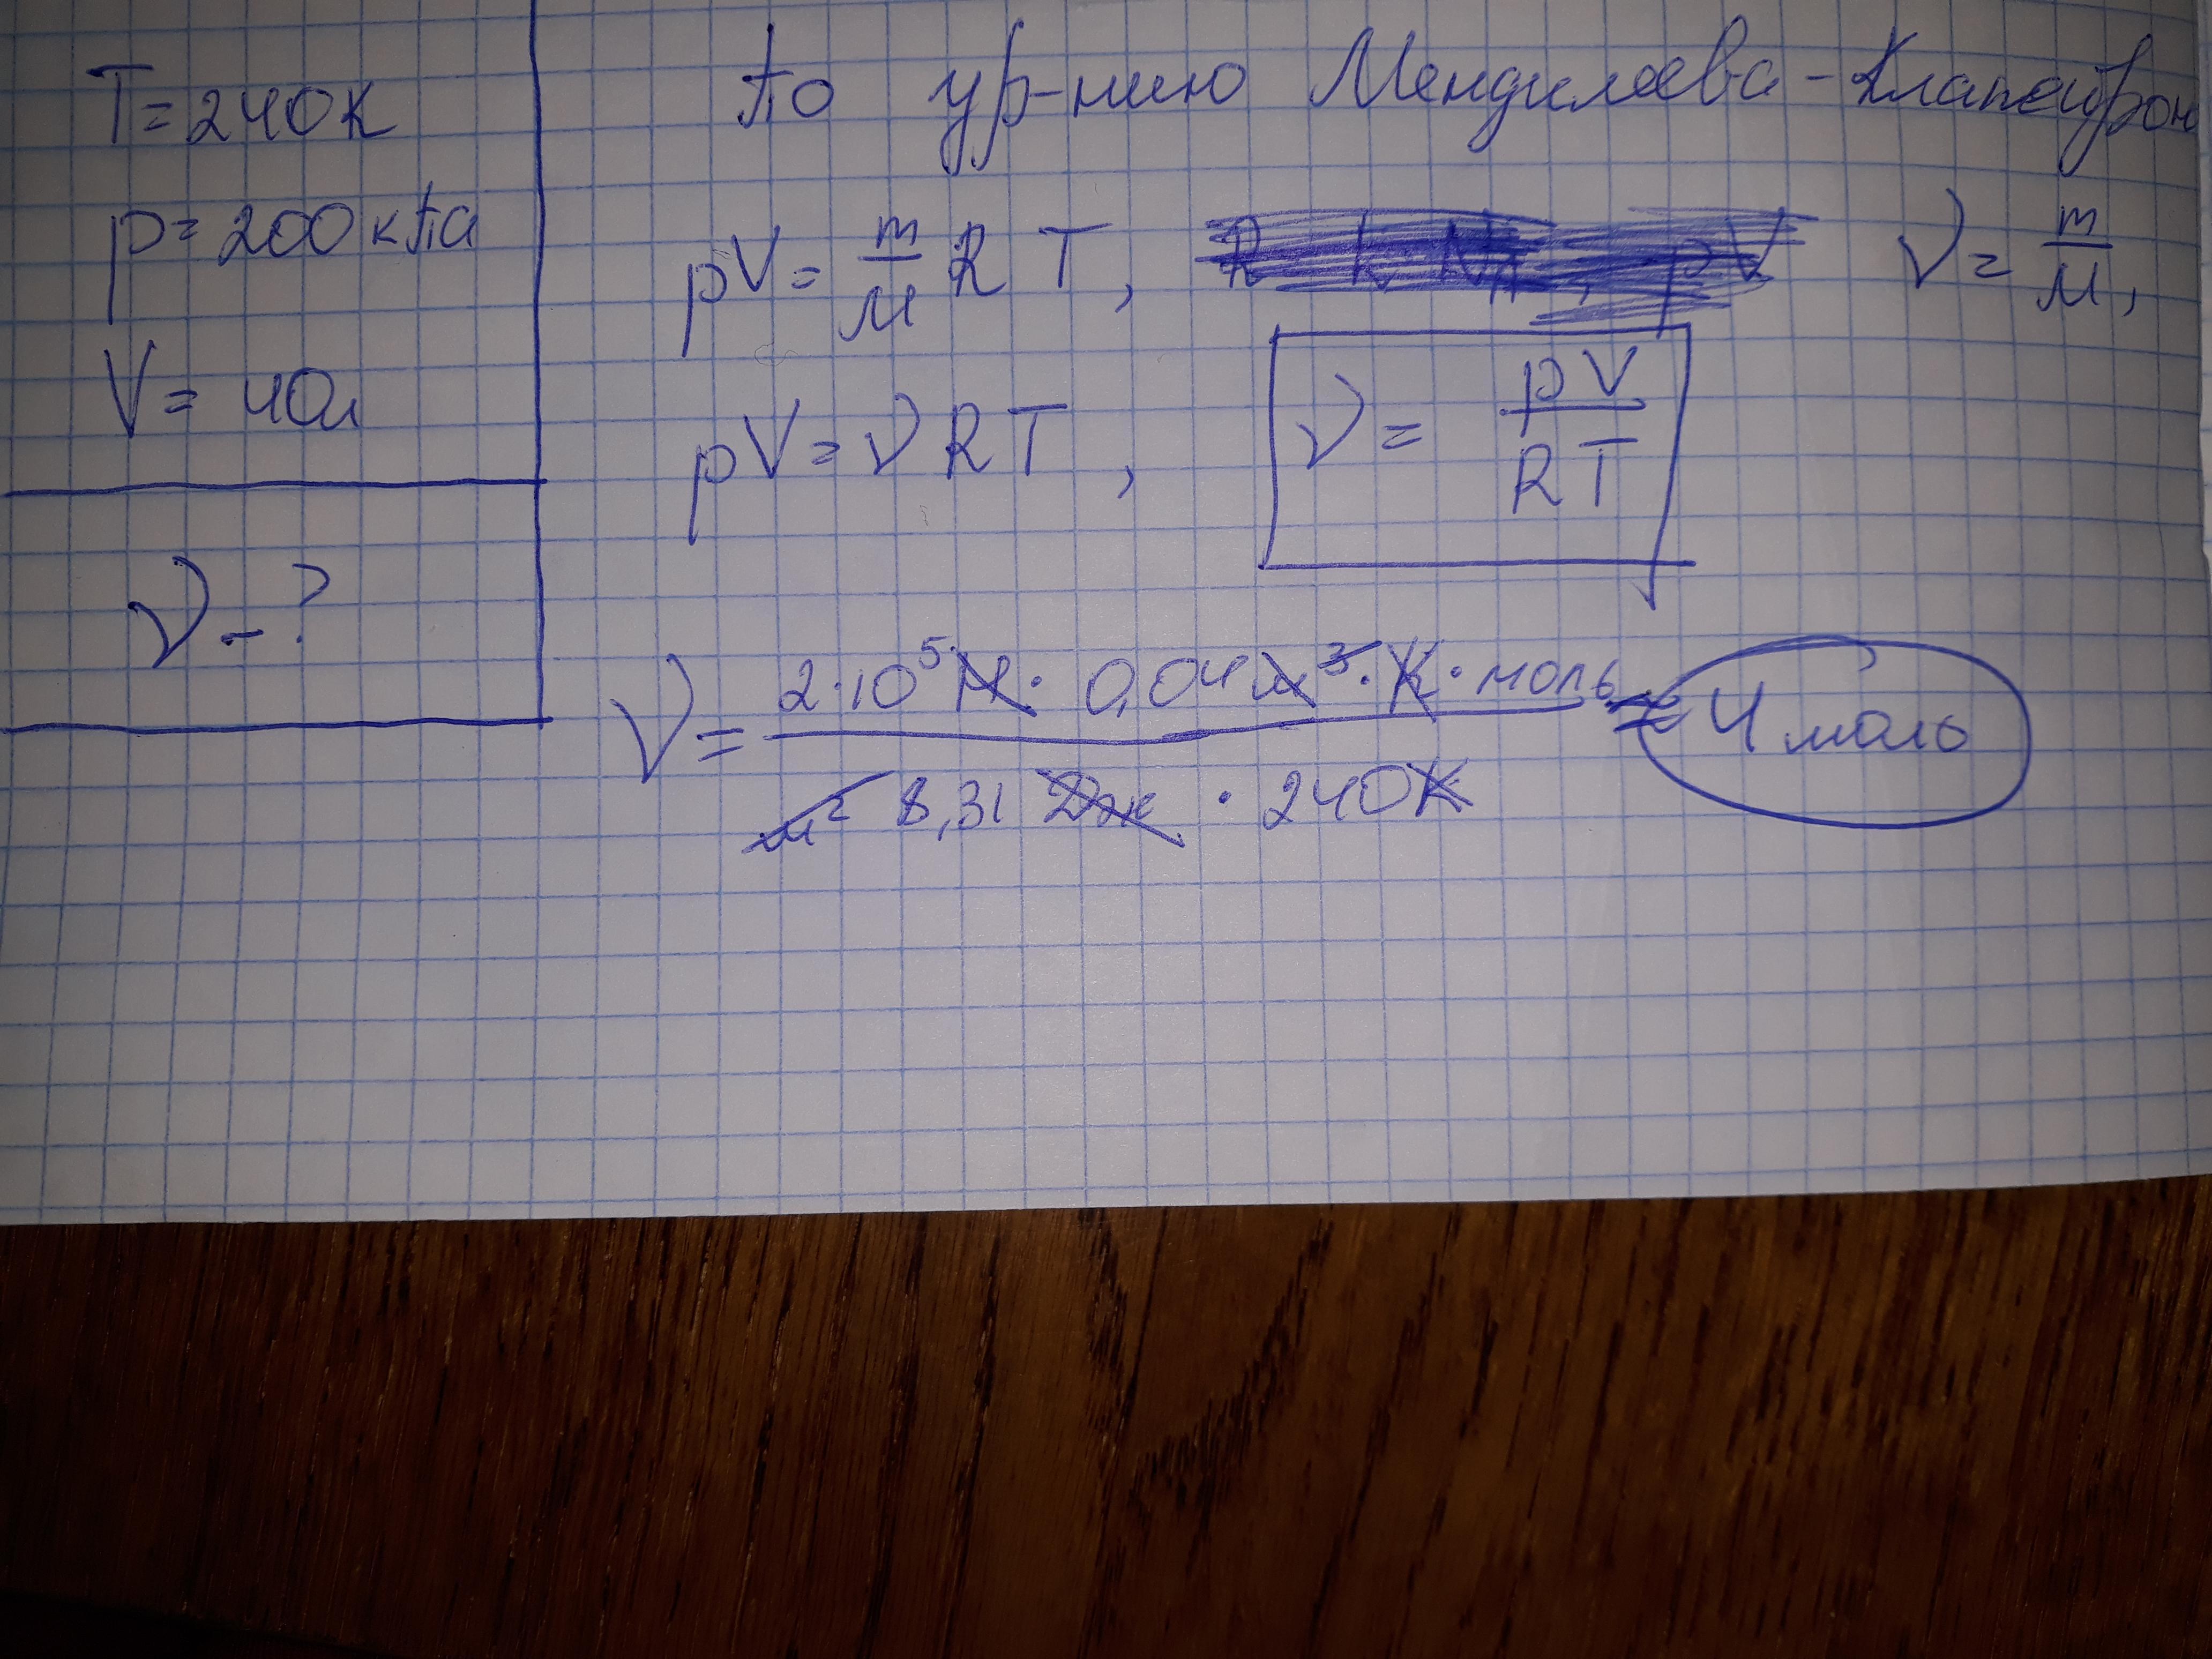 T = 240К
p = 200 кПа
V = 40л
ν - ?
По ур-нию Мендилеева-Клапейрон
pV = m/M R T, R k N_A, pV ν = m/M,
pV = ν R T, ν = pV/RT
ν = 2·10⁵ Н · 0,04 м³ · К · моль / м² 8,31 Дж · 240К ≈ 4 моль